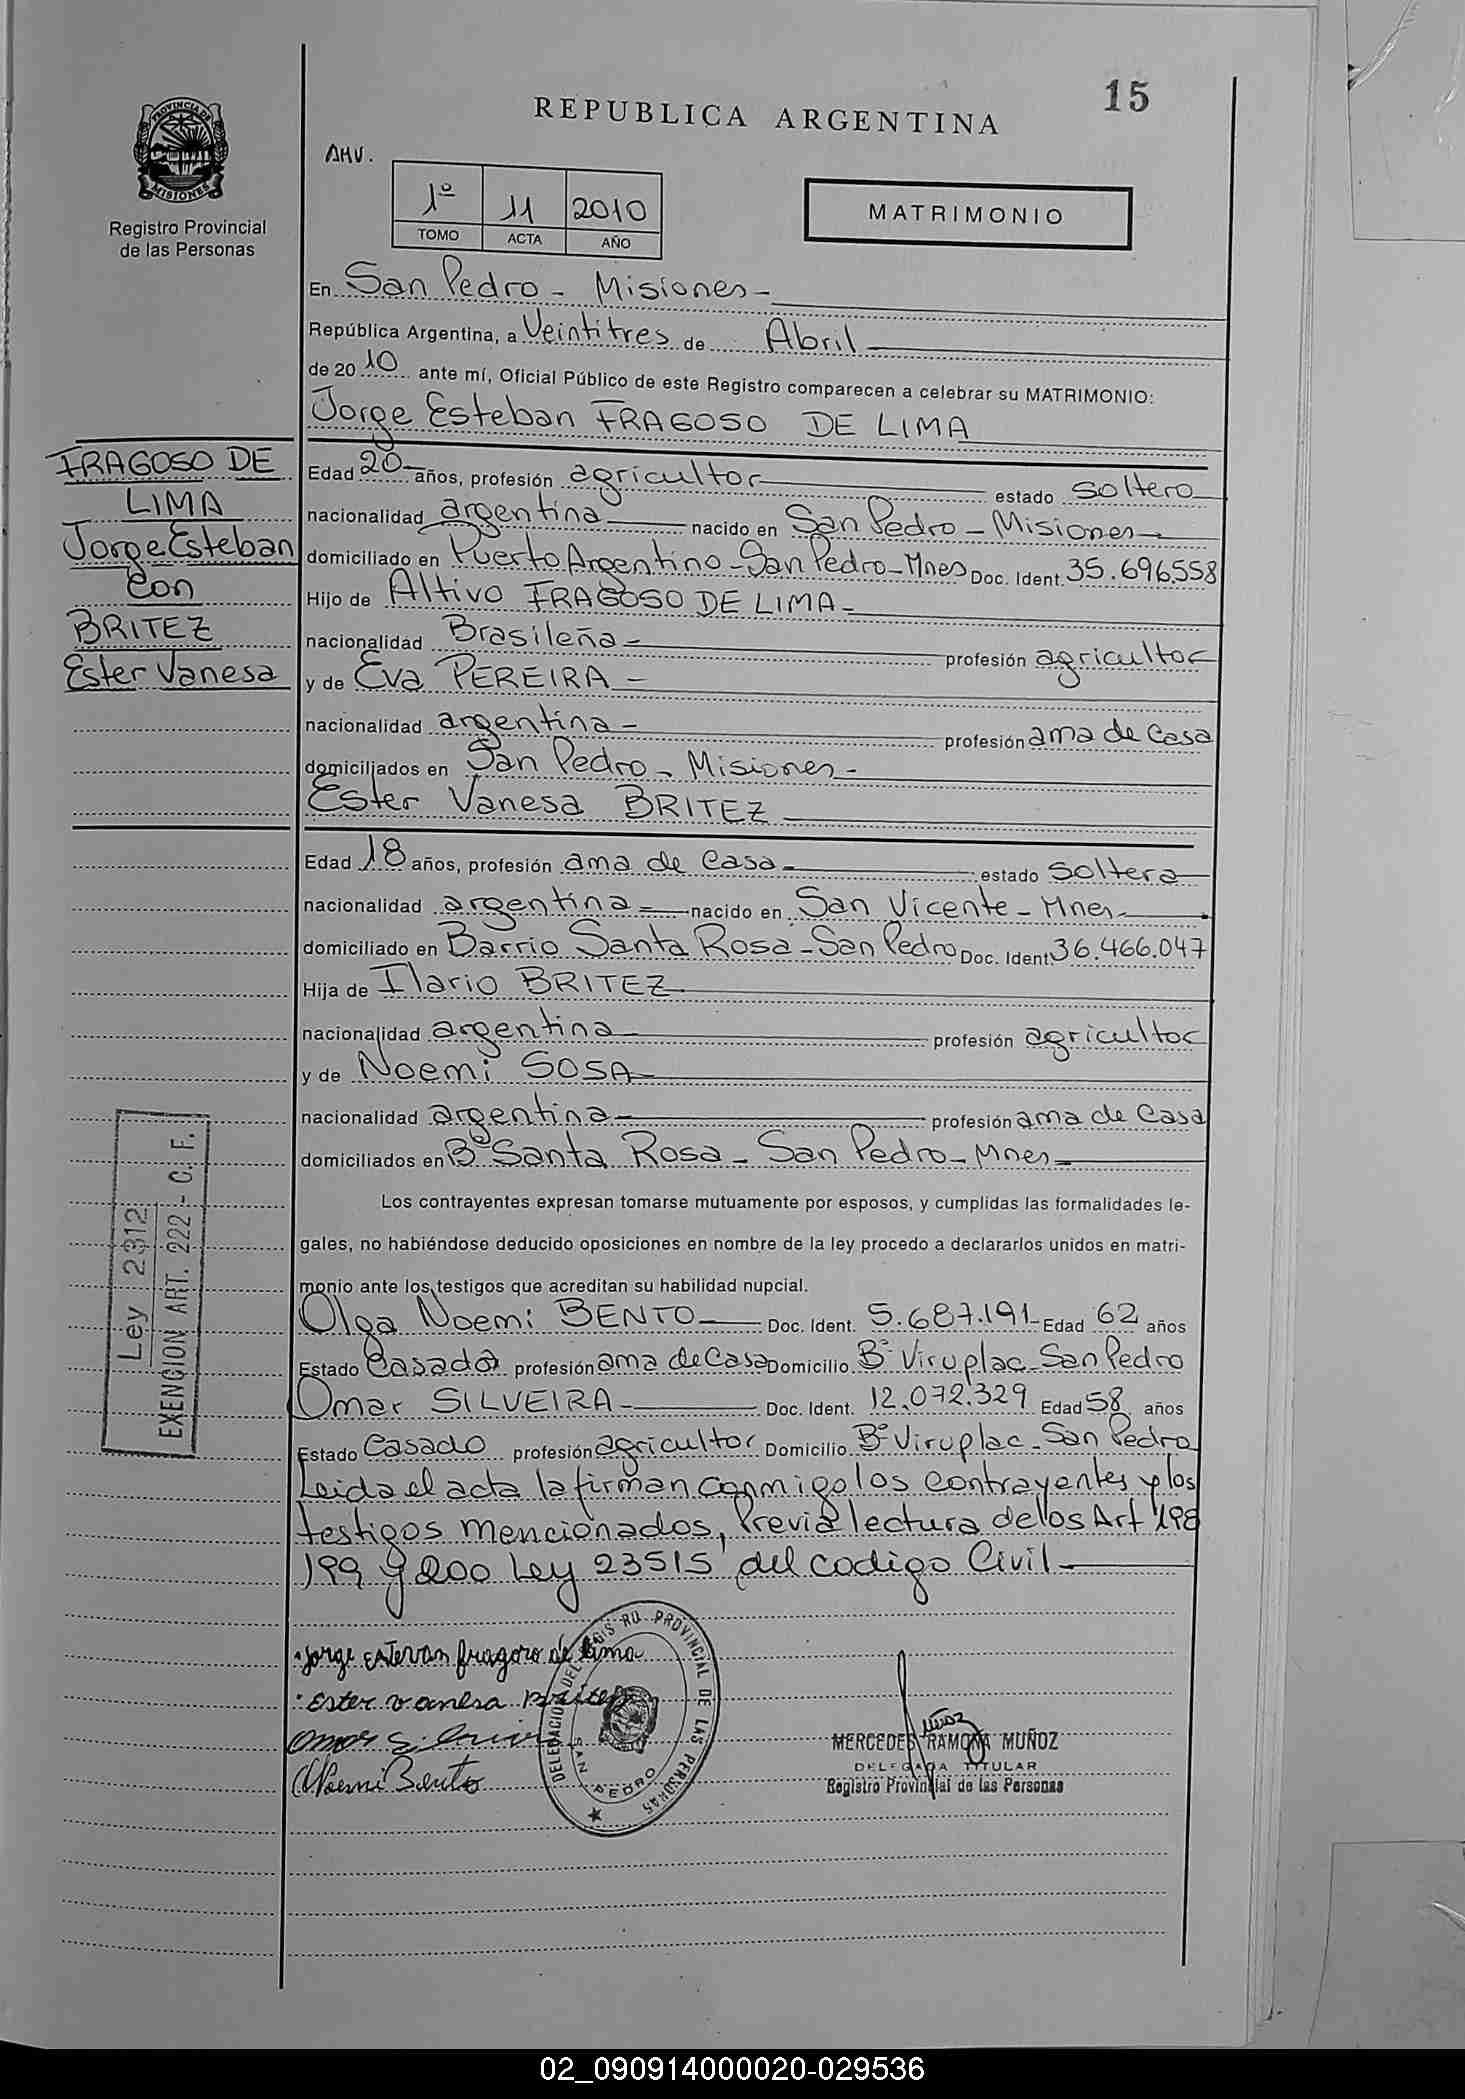 15
REPUBLICA ARGENTINA
PROVINCIA DE MISIONES
Registro Provincial
de las Personas
AHV.
1º 11 2010
TOMO ACTA AÑO
MATRIMONIO
En San Pedro - Misiones -
República Argentina, a Veintitres de Abril
de 2010 ante mí, Oficial Público de este Registro comparecen a celebrar su MATRIMONIO:
Jorge Esteban FRAGOSO DE LIMA
FRAGOSO DE
LIMA
Jorge Esteban
Con
BRITEZ
Ester Vanesa
Edad 20 años, profesión agricultor estado soltero
nacionalidad argentina nacido en San Pedro - Misiones
domiciliado en Puerto Argentino - San Pedro - Mnes Doc. Ident. 35.696.558
Hijo de Altivo FRAGOSO DE LIMA -
nacionalidad Brasileña - profesión agricultor
y de Eva PEREIRA -
nacionalidad argentina - profesión ama de Casa
domiciliados en San Pedro - Misiones -
Ester Vanesa BRITEZ
Edad 18 años, profesión ama de Casa - estado soltera
nacionalidad argentina - nacido en San Vicente - Mnes -
domiciliado en Barrio Santa Rosa - San Pedro Doc. Ident 36.466.047
Hija de Ilario BRITEZ
nacionalidad argentina profesión agricultor
y de Noemi SOSA
nacionalidad argentina profesión ama de Casa
domiciliados en Bº Santa Rosa - San Pedro - Mnes -
Los contrayentes expresan tomarse mutuamente por esposos, y cumplidas las formalidades le-
gales, no habiéndose deducido oposiciones en nombre de la ley procedo a declararlos unidos en matri-
monio ante los testigos que acreditan su habilidad nupcial.
Olga Noemi BENTO Doc. Ident. 5.687.191 Edad 62 años
Estado Casada profesión ama de Casa Domicilio Bº Viruplac - San Pedro
Omar SILVEIRA - Doc. Ident. 12.072.329 Edad 58 años
Estado Casado profesión agricultor Domicilio Bº Viruplac - San Pedro
Leida el acta la firman conmigo los contrayentes y los
testigos mencionados, Previa lectura de los Art 198
199 y 200 Ley 23515 del codigo Civil
Ley 2312
EXENCION ART. 222 - C. F.
Jorge Estevan fragoso de lima
Ester vanesa Britez
Omar Silveira
Noemi Bento
DELEGACION DEL REGISTRO PROVINCIAL DE LAS PERSONAS
SAN PEDRO
Muñoz
MERCEDES RAMONA MUÑOZ
DELEGADA TITULAR
Registro Provincial de las Personas
02_090914000020-029536